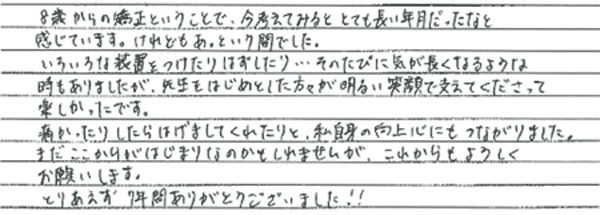 8歳からの矯正ということで、今考えてみるととても長い年月だったなと
感じています。けれどもあっという間でした。
いろいろな装置をつけたりはずしたり…そのたびに気が長くなるような
時もありましたが、先生をはじめとした方々が明るい笑顔で支えてくださって
楽しかったです。
痛かったりしたらはげましてくれたりと、私自身の向上心にもつながりました。
まだここからがはじまりなのかもしれませんが、これからもよろしく
お願いします。
とりあえず7年間ありがとうございました!!